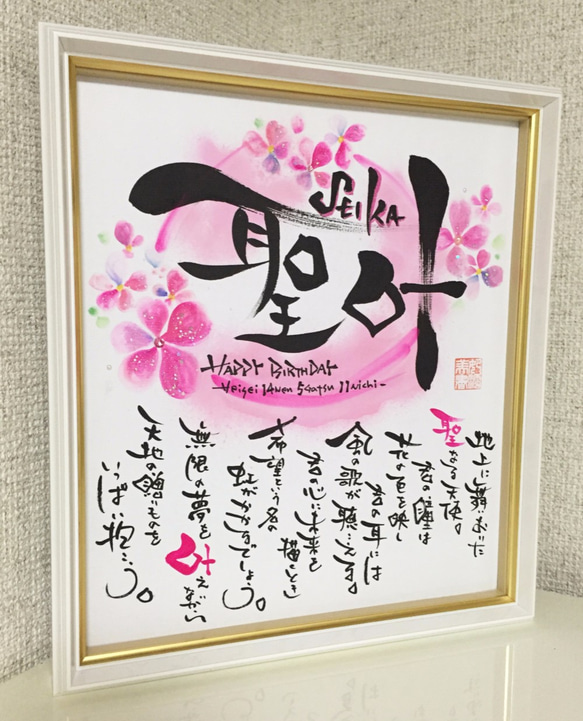 SEIKA
聖叶
HAPPY BIRTHDAY
-Heisei 14nen 5Gatsu 11nichi-
地上に舞いおりた
聖なる天使。
君の瞳は
花の色を映し
君の耳には
風の歌が聴こえる。
君の心に未来を
描くとき
希望という名の
虹がかかるでしょう。
無限の夢を叶えながら
天地の贈りものを
いっぱい抱こう。